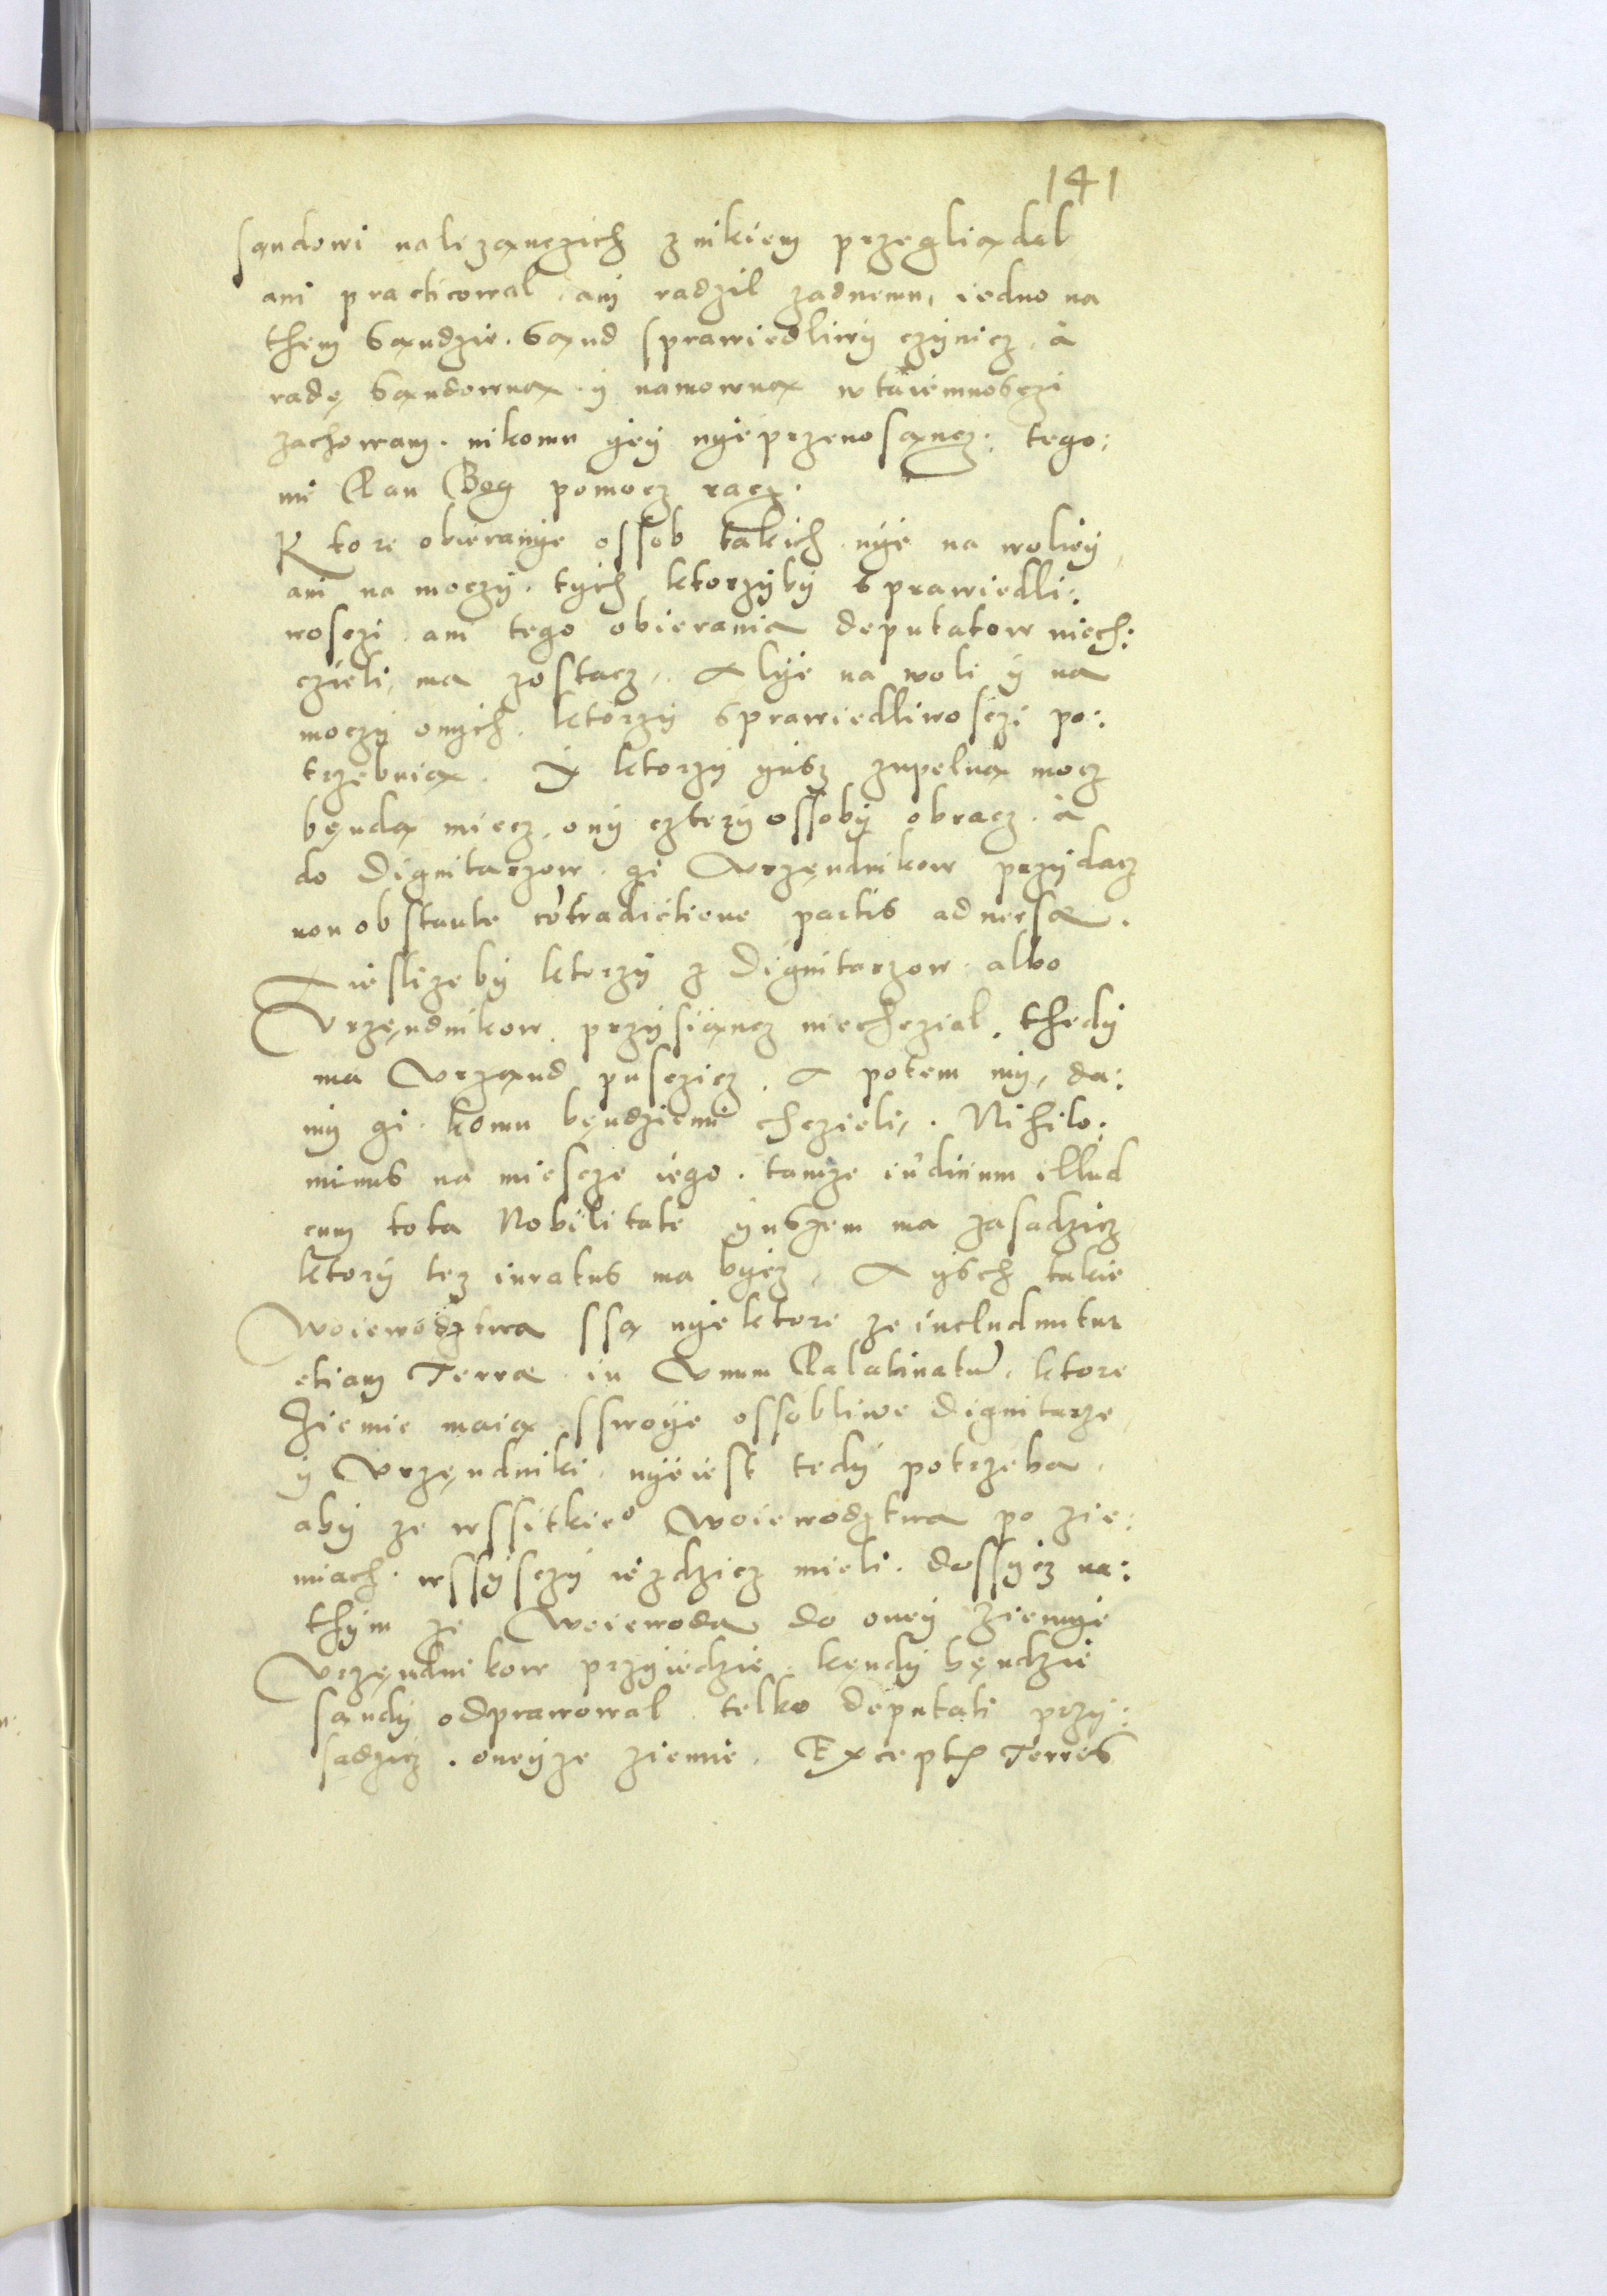 141
sąndowi nalezączich z nikiem przegliądal
ani practicowal, ani radzil zadnemu, iedno na
them sąndzie. sąnd sprawiedliwÿ czÿnicz, à
radę sąndowną. ÿ namowną w taiemnosczi
zachowam. nikomu ÿeÿ nÿe przenosząncz: tego:
mi Pan Bog pomocz racz.
Ktore obieranÿe ossob takich nÿe na woliëÿ
ani na moczÿ. tÿch ktorzÿbÿ sprawiedli:
wosczi ani tego obierania deputatow niech:
czieli, ma zostacz, Alÿe na woli ÿ na
moczÿ onÿch. ktorzÿ sprawiedliwosczi po:
trzebuią. Y ktorzÿ ÿusz zupelną mocz
będą miecz, onÿ czterÿ ossobÿ obracz. à
do Dignitarzow. gi Vrzędnikow przÿdacz
non obstante cõtradictione partis aduersæ.
A ieslizebÿ ktorzÿ z Dignitarzow albo
Vrzęndnikow. przÿsiąncz niechczial. thedÿ
ma Vrząnd pusczicz. A potem mÿ, da:
mÿ gi. komu będziemi chczieli,. Nihilo:
minus na miescze iego. tamze iudicium illud
cum tota Nobilitate ÿuszem ma zasadzicz
ktorÿ tez iuratus ma bÿcz, A ÿsch takie
Woiewodztwa ssą nÿektore ze includuntur
etiam Terræ in Vnum Palatinatũ. ktore
Ziemie maią sswoÿe ossobliwe Dignitarze
ÿ Vrzęndniki. nÿeiest tedÿ potrzeba.
abÿ ze wssitkieº Woiewodztwa po zie:
miach. wssÿsczÿ iezdzicz mieli. dossÿcz na:
thÿm ze Woiewoda do oneÿ ziemÿe
Vrzęndnikow przÿiedzie. kęndÿ bęndzie
sąndÿ odprawowal. telko deputati przÿ:
sadzicz. oneÿze ziemie. Exceptis Terris